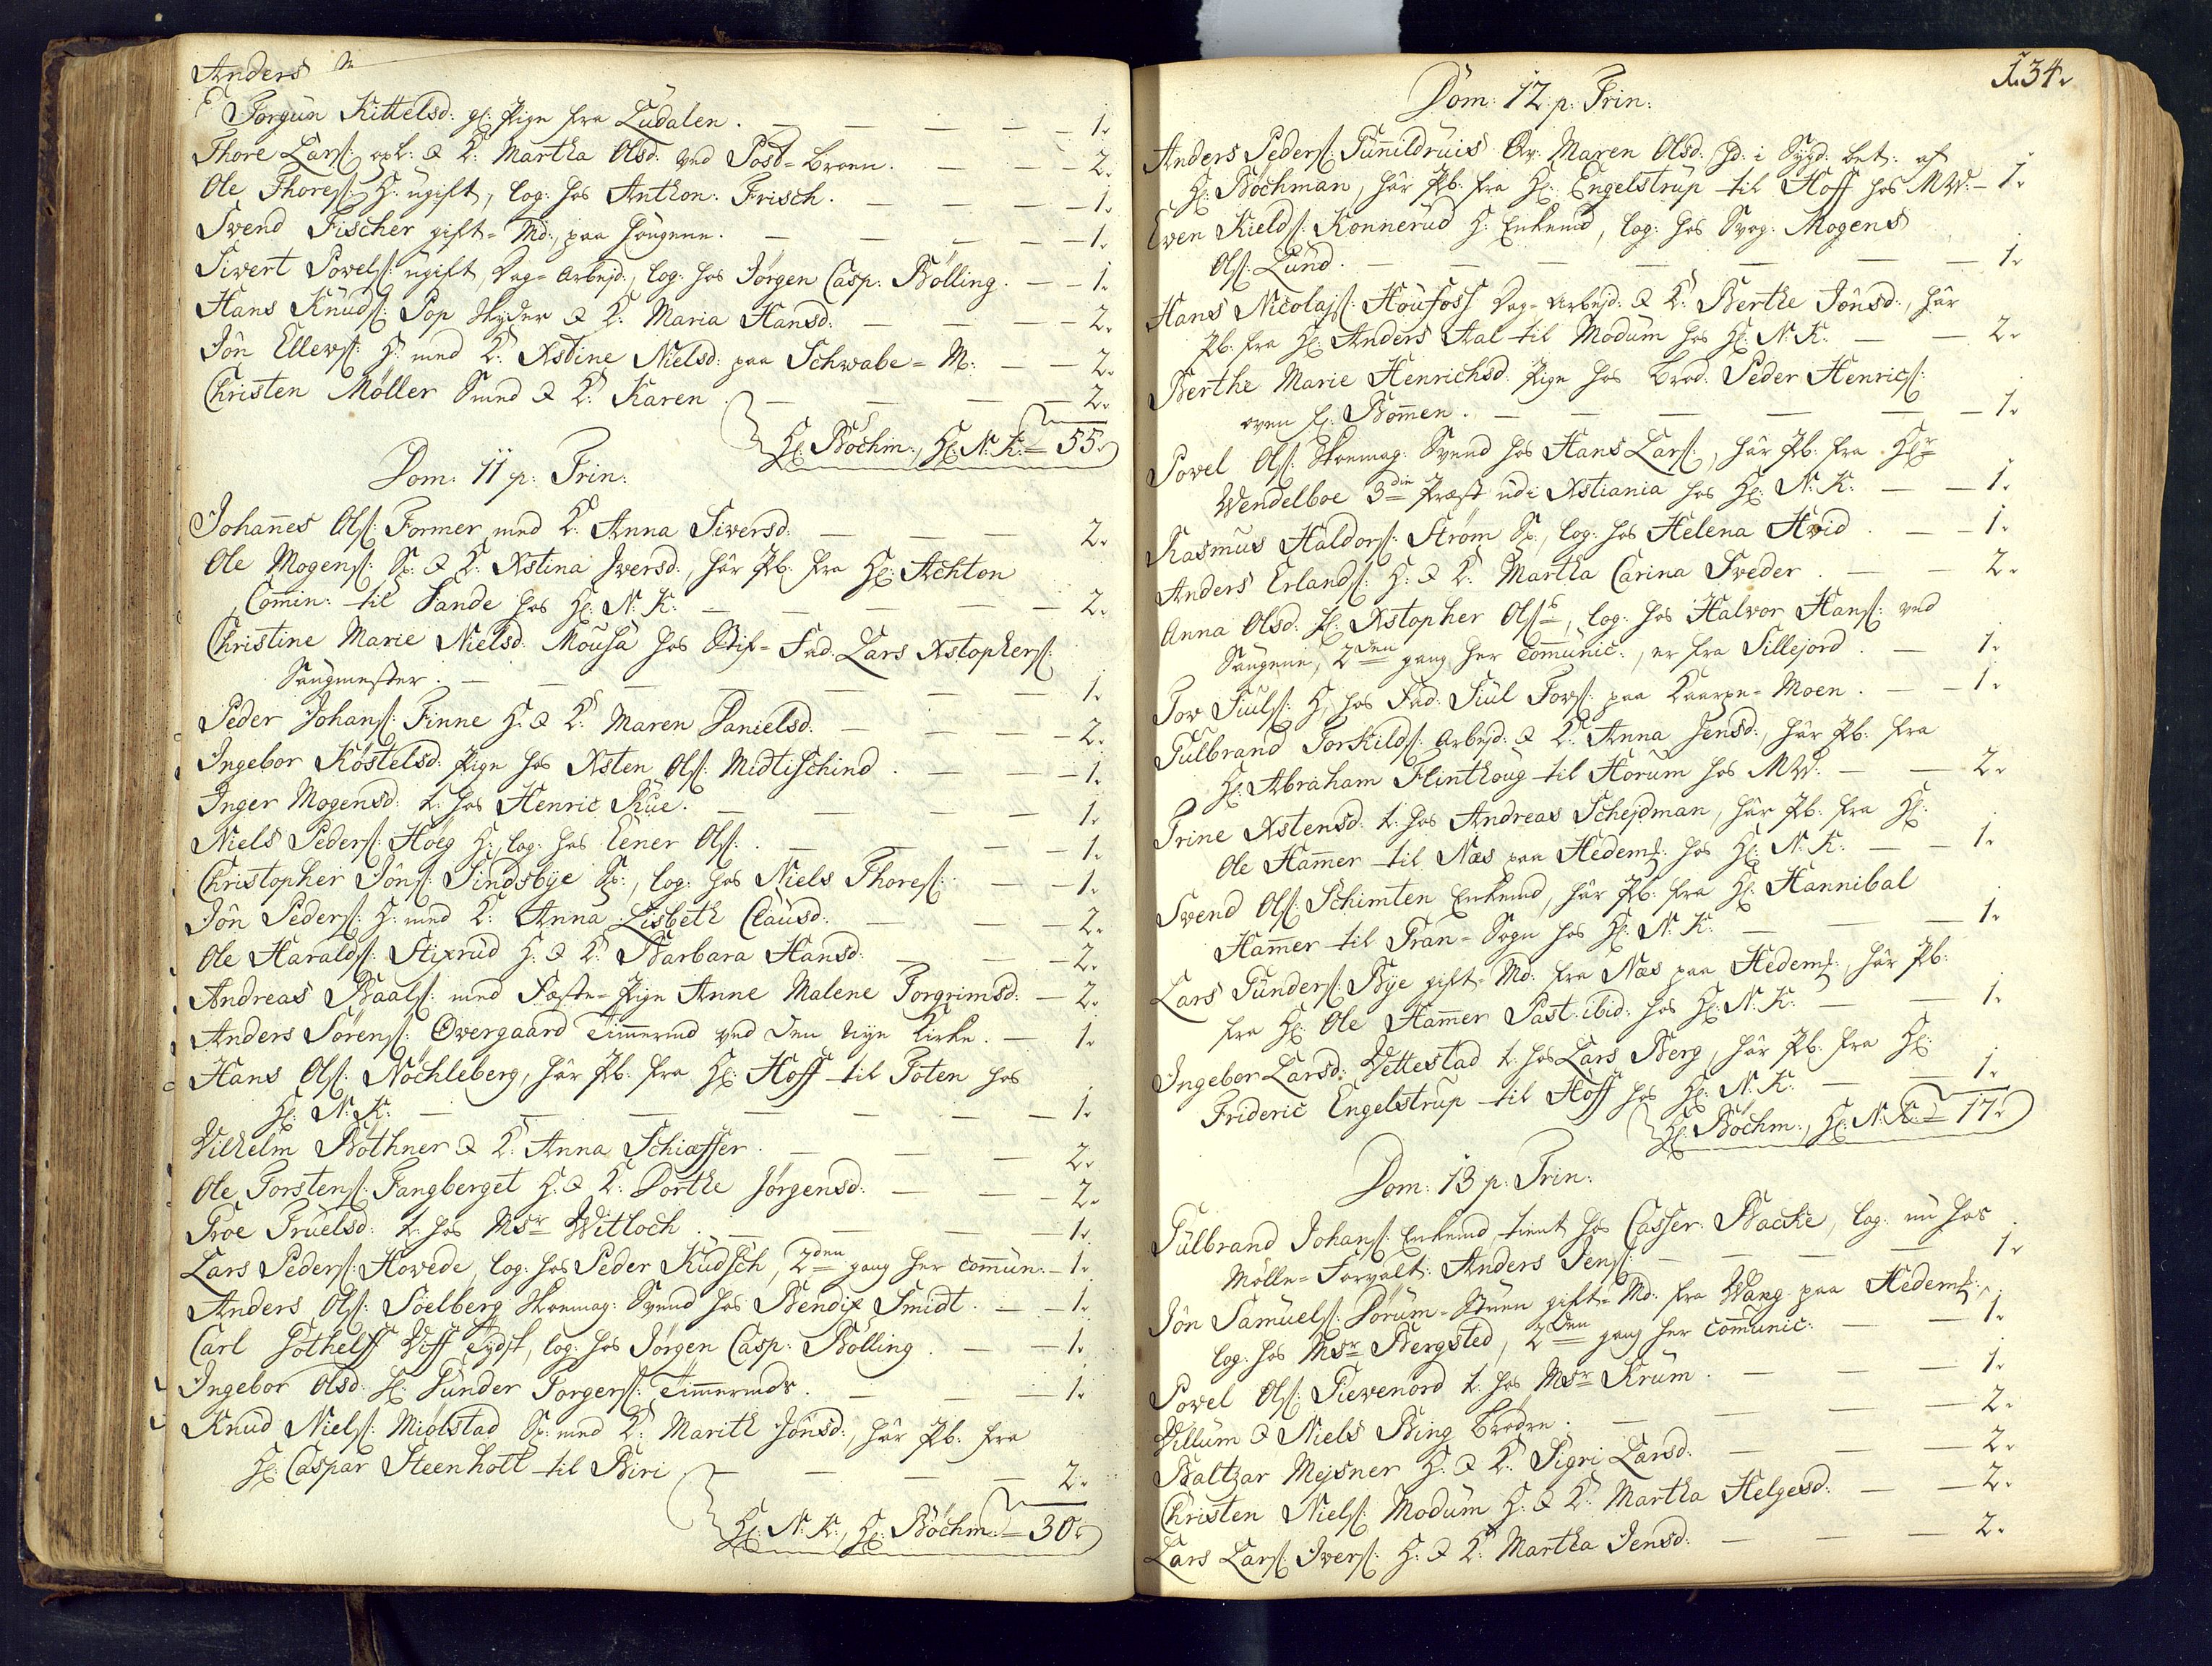 Anders
Torgun Kittelsd: gl: Pige fra Ludalen. — 1.
Thore Lars: opl: & K: Martha Olsd: ved Post-broen. — 2.
Ole Thores: H: ugift, log: hos Anthon: Frisch. — 1.
Svend Fischer gift-Md:, paa Haugene. — 1.
Sivert Povels: ugift, Dag-Arbejd:, log: hos Jørgen Casp: Bølling. — 1.
Hans Knuds: Pop Skyder & K: Maria Hansd: — 2.
Jôn Ellevs: H: med K: Xstine Nielsd: paa Schwabe-M: — 2.
Christen Møller Smed & K: Karen — 2.
Hr: Bøchm:, Hr: N: K: = 55.
Dom: 11 p: Trin:
Johannes Ols: Former med K: Anna Siversd: — 2.
Ole Mogens: Sp: & K: Xstina Iversd:, har Pb: fra Hr: Achton
Commin: til Sande hos Hr: N: K: — 2.
Christine Marie Nielsd: Mouså hos Stif-Fad: Lars Xstophers:
Saugmester. — 1.
Peder Johans: Finne H: & K: Maren Danielsd: — 2.
Ingebor Kôstelsd: Pige hos Xsten Ols: Midtischind. — 1.
Inger Mogensd: t: hos Henric Rue. — 1.
Niels Peders: Høeg H:, log: hos Eener Ols: — 1.
Christopher Jôns: Sindsbye Sp:, log: hos Niels Thores: — 1.
Jôn Peders: H: med K: Anna Lisbeth Clausd: — 2.
Ole Haralds: Stixrud H: & K: Barbara Hansd: — 2.
Andreas Baals: med Fæste-Pige Anne Malene Torgrimsd: — 2.
Anders Sørens: Overgaard Timmermd ved den nye Kirke. — 1.
Hans Ols: Nøchleberg, har Pb: fra Hr: Hoff til Toten hos
Hr: N: K: — 1.
Vilhelm Bøthner & K: Anna Schiæffer. — 2.
Ole Torstens: Fangberget H: & K: Dorthe Jørgensd: — 2.
Troe Truelsd: t: hos Msr Witloch. — 1.
Lars Peders: Hovede, log: hos Peder Kudsch, 2den gang her commun: — 1.
Anders Ols: Søelberg Skoemag: Svend hos Bendix Smidt. — 1.
Carl Gothelff Viff Tydsk, log: hos Jørgen Casp: Bølling. — 1.
Ingebor Olsd: Gunder Torgers: Timmermds. — 1.
Knud Niels: Miølstad Sp: med K: Marith Jônsd:, har Pb: fra
Hr: Caspar Steenholt til Biri — 2.
Hr: N: K:, Hr: Bøchm: = 30.
134.
Dom: 12 p: Trin:
Anders Peders: Gunnildruis Qv: Maren Olsd: Sd: i Sygd: bet: af
Hr: Bøchman, har Pb: fra Hr: Engelstrup til Hoff hos MW: — 1.
Even Kields: Konnerud H: Enkemd, log: hos Svog: Mogens
Ols: Lund. — 1.
Hans Nicolajs: Houfoss Dag-Arbejd: & K: Berthe Jônsd:, har
Pb: fra Hr: Anders Aal til Modum hos Hr: N: K: — 2.
Berthe Marie Henrichsd: Pige hos brod: Peder Henrics:
oven f: Bommen. — 1.
Povel Ols: Skoemag: Svend hos Hans Lars:, har Pb: fra Hr
Wendelboe 3die Præst udi Xstiania hos Hr: N: K: — 1.
Rasmus Haldors: Strøm Sp:, log: hos Helena Hvid. — 1.
Anders Erlands: H: & K: Martha Carina Sveder. — 2.
Anna Olsd: Xstopher Ols:, log: hos Halvor Hans: ved
Saugene, 2den gang her communic:, er fra Sillejord. — 1.
Tov Siuls: H: hos Fad: Siul Tovs: paa Kaarpe-Moen. — 1.
Gulbrand Torkilds: Arbejd: & K: Anna Jensd:, har Pb: fra
Hr: Abraham Flinthoug til Hørum hos MW: — 2.
Trine Xstensd: t: hos Andreas Schejdman, har Pb: fra Hr:
Ole Hammer til Næs paa Hedemk: hos Hr: N: K: — 1.
Svend Ols: Schimten Enkemd, har Pb: fra Hr: Hannibal
Hammer til Gran-Sogn hos Hr: N: K: — 1.
Lars Gunders: Bye gift-Md: fra Næs paa Hedemk:, har Pb:
fra Hr: Ole Hammer Past: ibid: hos Hr: N: K: — 1.
Ingebor Larsd: Vettestad t: hos Lars Berg, har Pb: fra Hr:
Frideric Engelstrup til Hoff hos Hr: N: K: — 1.
Hr: Bøchm:, Hr: N: K: = 17.
Dom: 13 p: Trin:
Gulbrand Johans: Enkemd, tient hos Casser: Backe, log: nu hos
Mølle-Forvalt: Anders Jens: — 1.
Jôn Samuels: Dørum-Støen gift-Md: fra Wang paa Hedemk:,
log: hos Msr Bergsted, 2den gang her communic: — 1.
Povel Ols: Tievenord t: hos Msr Krum. — 1.
Villum & Niels Bing brødre. — 2.
Baltzar Mejsner H: & K: Sigri Larsd: — 2.
Christen Niels: Modum H: & K: Martha Helgesd: — 2.
Lars Lars: Ivers: H: & K: Martha Jensd: — 2.